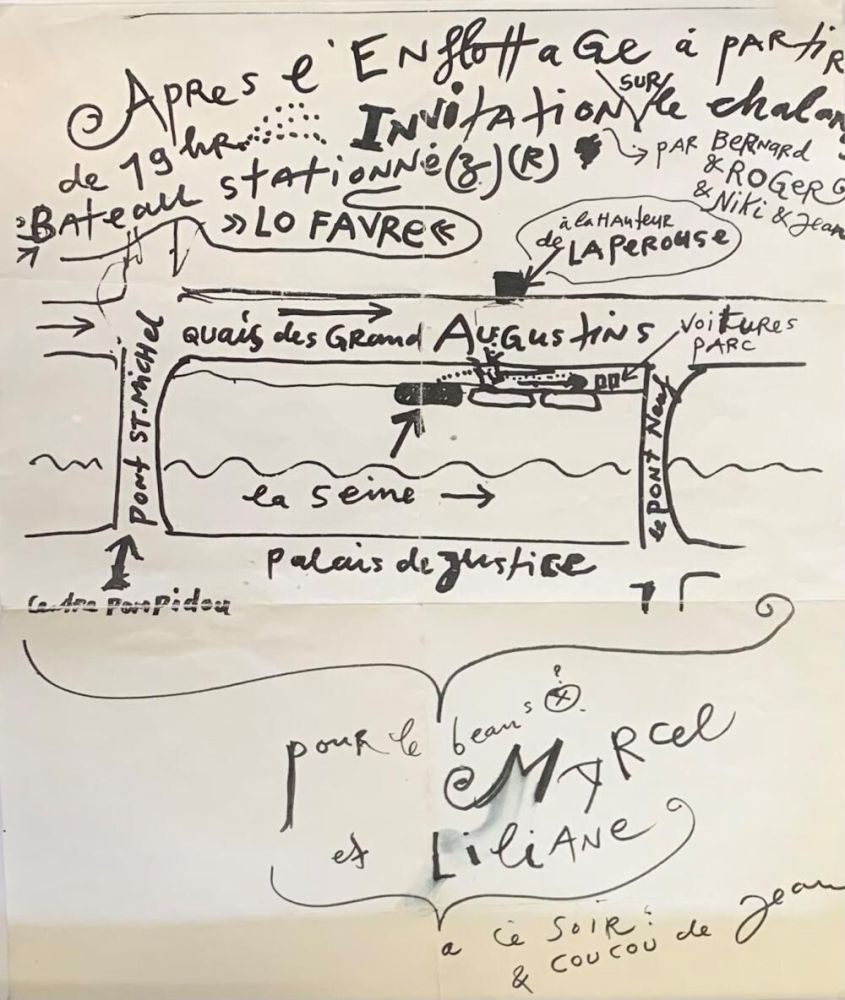 Après l'ENflottAGe à PARtiR
de 19 hR... INVitAtioN SUR le chalan
PAR BeRNaRd
& ROGeR
& Niki & Jean
BAteau stAtioNNé(z)(R)
»LO FAVRe«
à la HAuteuR
de LAPeROUSe
QUAis des GRand AUGUStiNS
VoituRes
PARC
PoNt ST. MicHel
le PONt Neuf
la Seine →
PALais de Justice
Centre PomPidou
pouR le beau
MARcel
et LiliANe
a ce SoiR
& coucou de Jean